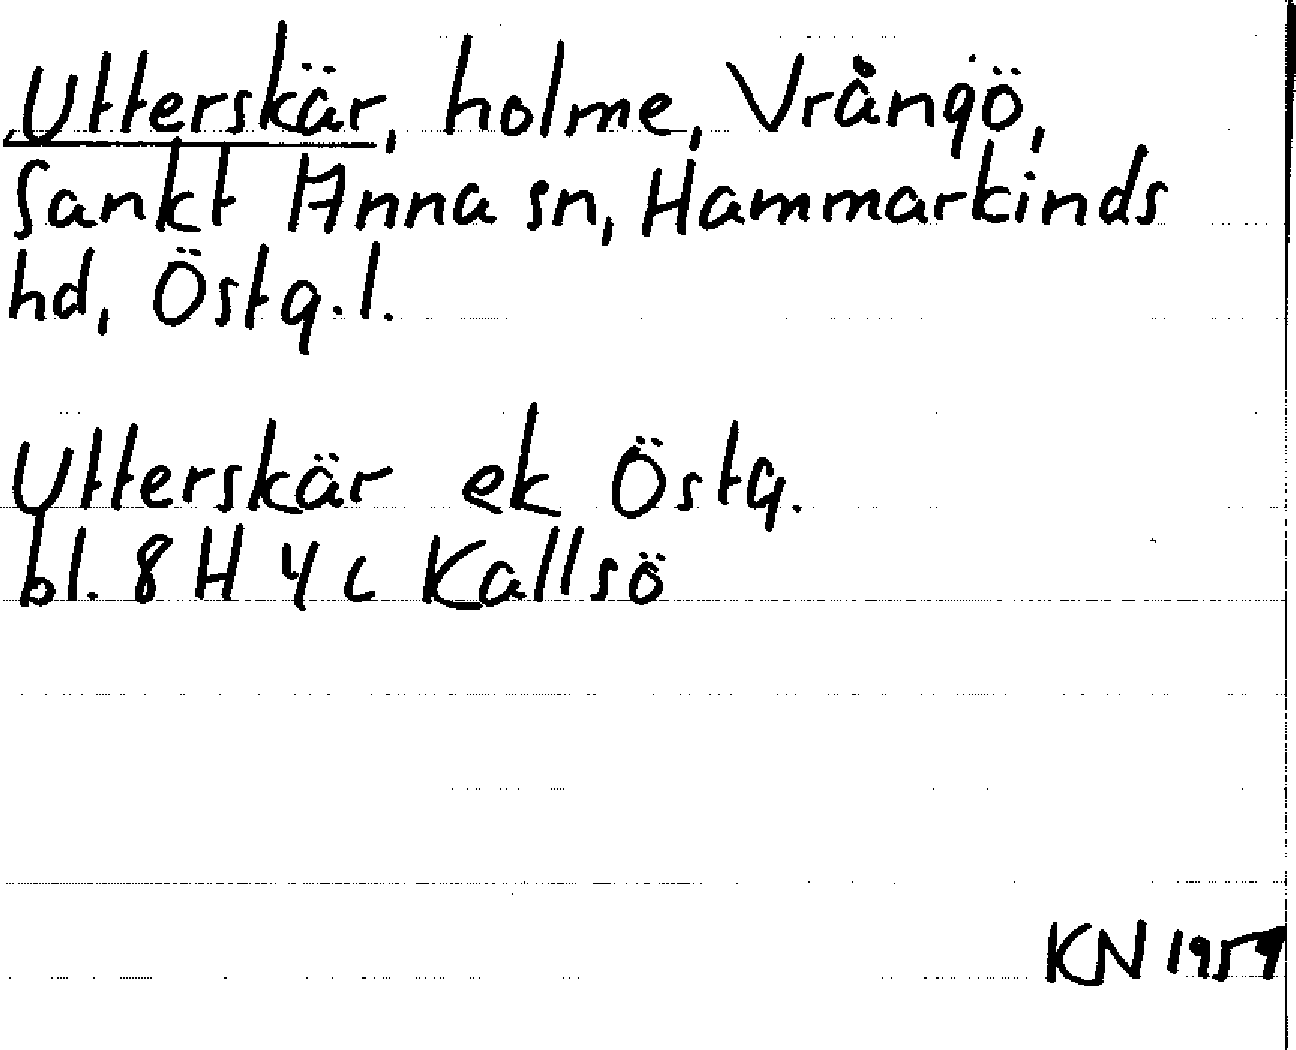 Utterskär, holme, Vrångö,
Sankt Anna sn, Hammarkinds
hd, Östg. l.
Utterskär ek Östg.
bl. 8 H 4 c Kallsö
KN 1959